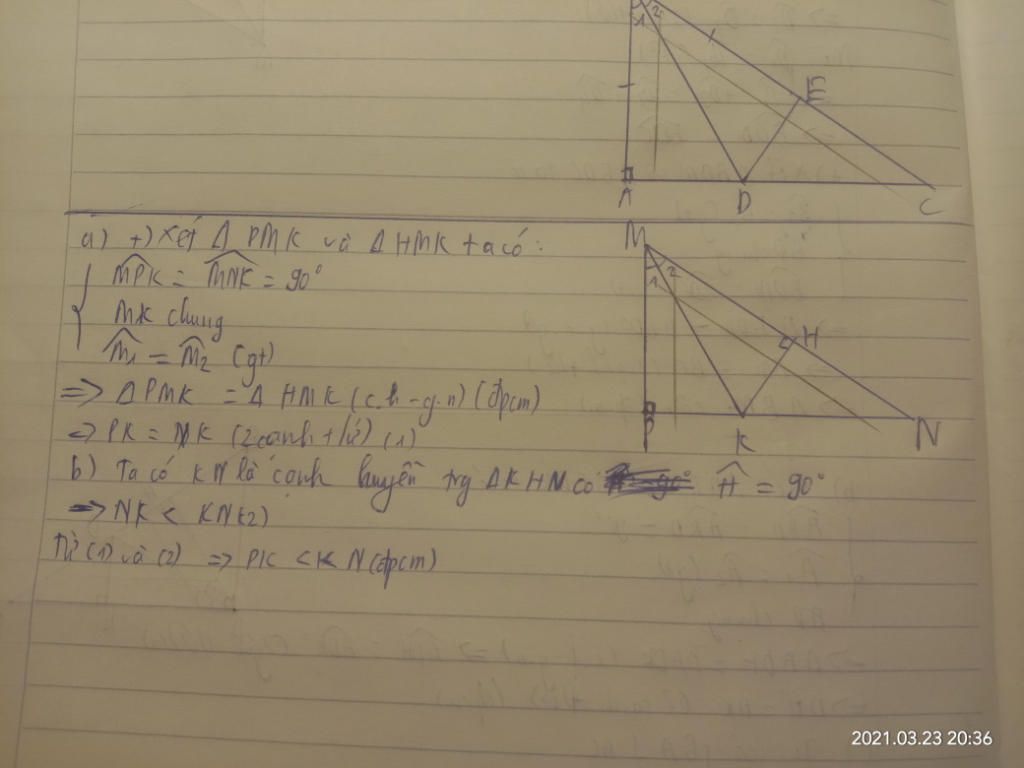 1 2
E
A D C
a) +) Xét Δ PMK và Δ HMK ta có:
M
1 2
MPK = MNK = 90°
MK chung
M1 = M2 (gt)
H
=> Δ PMK = Δ HMK (c.h - g.n) (đpcm)
=> PK = NK (2 cạnh t/ứ) (1)
P K N
b) Ta có KN là cạnh huyền trg ΔKHN có H = 90°
=> NK < KN (2)
Từ (1) và (2) => PK < KN (đpcm)
2021.03.23 20:36